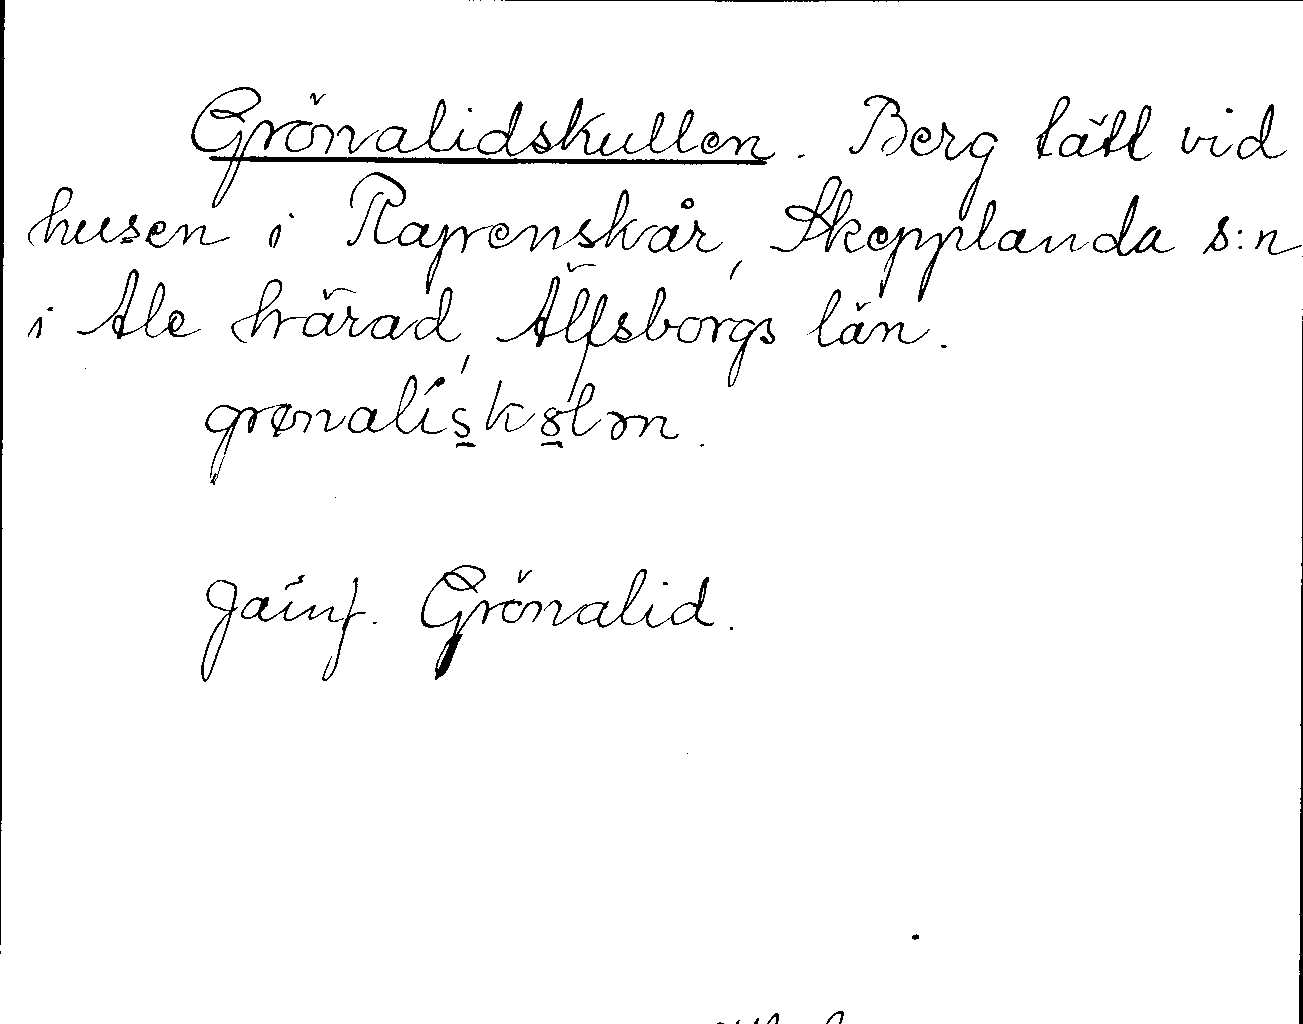 Grönalidskullen. Berg tätt vid
husen i Raprenskår, Skepplanda s:n
i Ale härad, Älfsborgs län.
grønalískɵlən.
Jämf. Grönalid.